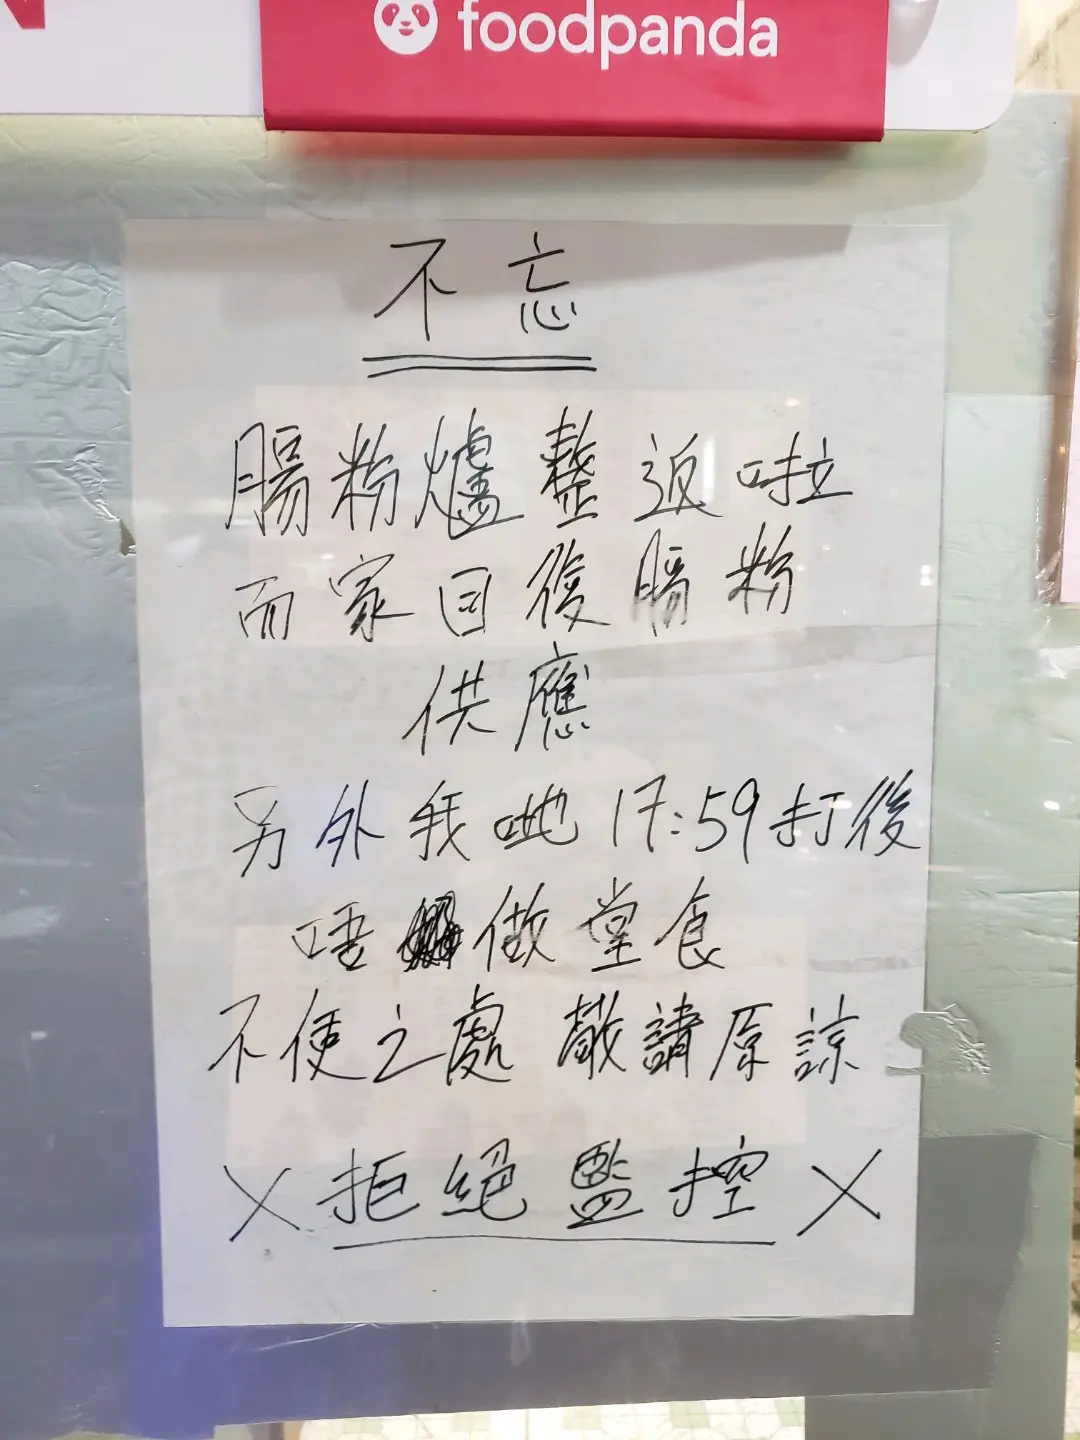 foodpanda
不忘
腸粉爐整返啦
而家回復腸粉
供應
另外我哋17:59打後
唔做堂食
不便之處 敬請原諒
X拒絕監控X